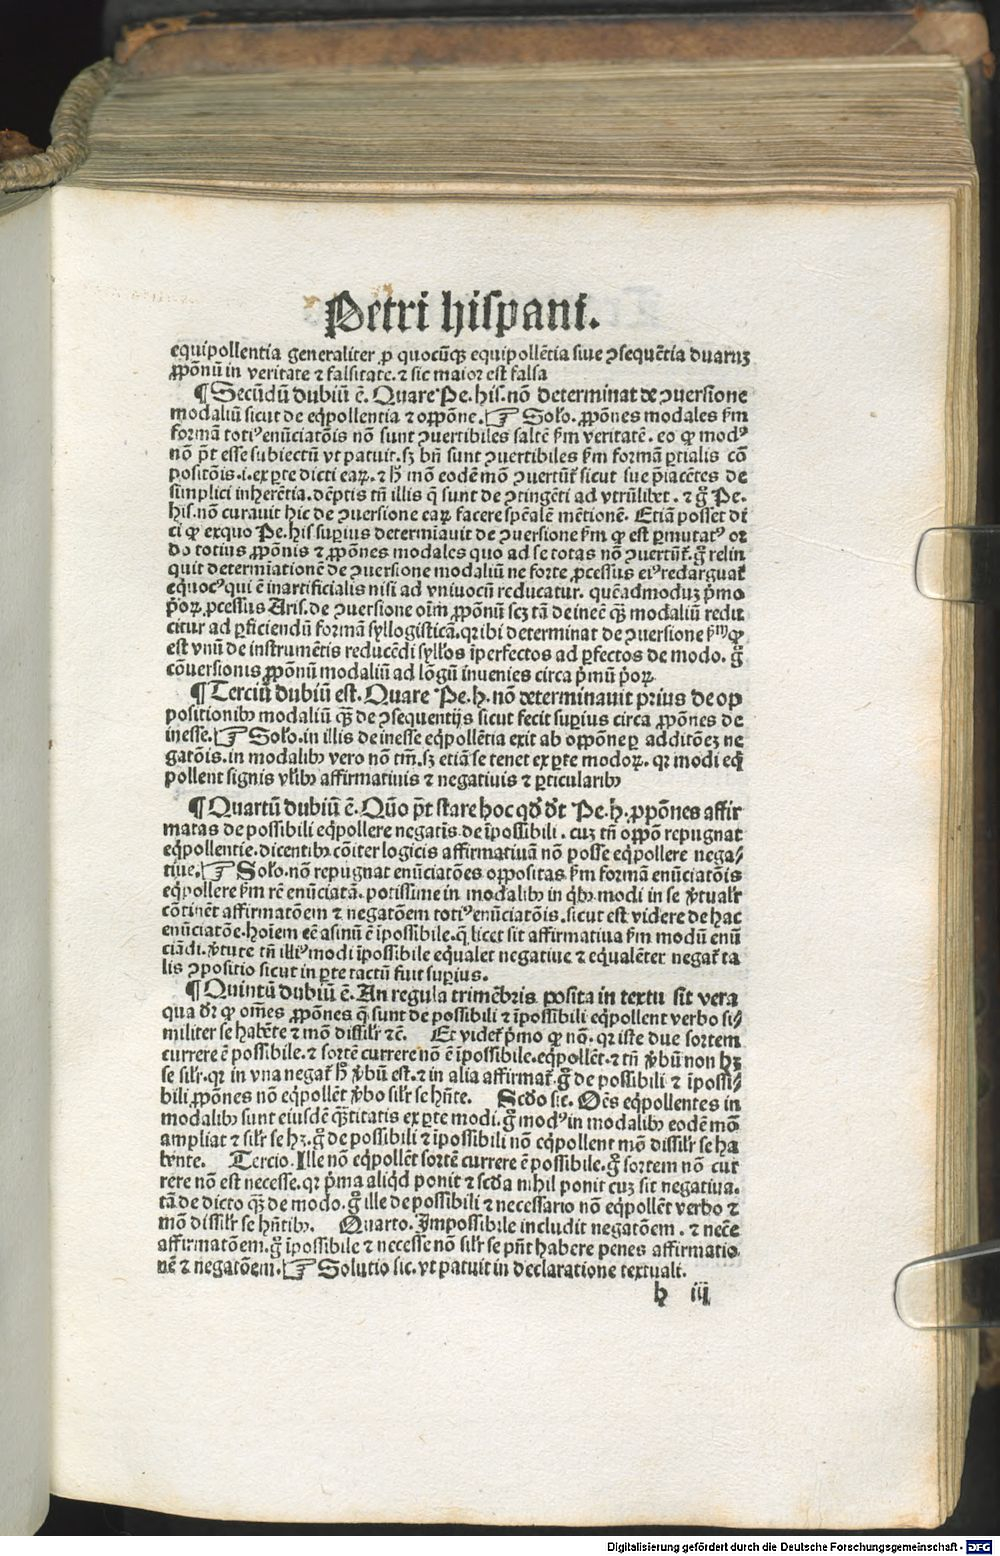 Petri hispani.
equipollentia generaliter ꝓ quocūqꝫ equipollētia siue ꝯsequētia duaruꝫ
ꝓpōnū in veritate ⁊ falsitate. ⁊ sic maior est falsa
¶ Secūdū dubiū ē. Quare Pe. his. nō determinat de ꝯuersione
modaliū sicut de eq̄pollentia ⁊ oppōne. ☞ Solo. ꝓpōnes modales ẜm
formā totiꝰ enūciatōis nō sunt ꝯuertibiles saltē ẜm veritatē. eo ꝙ modꝰ
nō p̄t esse subiectū vt patuit. sꝫ bn̄ sunt ꝯuertibiles ẜm formā ꝑtialis cō
positōis .i. ex ꝑte dicti eaꝝ. ⁊ h̄ mō eodē mō ꝯuertūt̄ sicut sue p̄iacētes de
simplici inherētia. dēptis tn̄ illis q̄ sunt de ꝯtingēti ad vtrūlibet. ⁊ g̊ Pe.
his. nō curauit hic de ꝯuersione eaꝝ facere spēalē mētionē. Etiā posset di
ci ꝙ exquo Pe. his suꝑius determiauit de ꝯuersione ẜm ꝙ est ꝑmutatꝰ or
do totius ꝓpōnis ⁊ ꝓpōnes modales quo ad se totas nō ꝯuertūt̄. g̊ relin
quit determiationē de ꝯuersione modaliū ne forte ꝓcessus eiꝰ redarguat̄
eq̄uocꝰ qui ē inartificialis nisi ad vniuocū reducatur. quēadmoduꝫ p̄mo
p̄oꝝ. ꝓcessus Aris. de ꝯuersione oīm ꝓpōnū scꝫ tā de ineē qꝫ modaliū redu
citur ad ꝑficiendū formā syllogisticā. qꝛ ibi determinat de ꝯuersione ẜm ꝙ
est vnū de instrumētis reducēdi syllos īperfectos ad ꝑfectos de modo. g̊
cōuersionis ꝓpōnū modaliū ad lōgū inuenies circa p̄mū p̄oꝝ
¶ Terciū dubiū est. Quare Pe. h. nō determinauit prius de op
positionibꝫ modaliū qꝫ de ꝯsequentijs sicut fecit supius circa ꝓpōnes de
inesse. ☞ Solo. in illis de inesse eq̄pollētia exit ab oppōne ꝑ additōeꝫ ne
gatōis. in modalibꝫ vero nō tm̄. sꝫ etiā se tenet ex ꝑte modoꝝ. qꝛ modi eq̄
pollent signis vlibꝫ affirmatiuis ⁊ negatiuis ⁊ ꝑticularibꝫ
¶ Quartū dubiū ē. Quō p̄t stare hoc qd̄ dt̄ Pe. h. ꝓpōnes affir
matas de possibili eq̄pollere negatis de īpossibili. cuꝫ tn̄ oppō repugnat
eq̄pollentie. dicentibꝫ cōiter logicis affirmatiuā nō posse eq̄pollere nega⸗
tiue. ☞ Solo. nō repugnat enūciatōes oppositas ẜm formā enūciatōis
eq̄pollere ẜm rē enūciatā. potissime in modalibꝫ in qbꝫ modi in se v̓tualr̄
cōtinēt affirmatōem ⁊ negatōem totiꝰ enūciatōis. sicut est videre de hac
enūciatōe. hoīem eē asinū ē īpossibile. q̄ licet sit affirmatiua ẜm modū enū
ciādi. v̓tute tn̄ illiꝰ modi īpossibile eq̄ualet negatiue ⁊ eq̄ualēter negat̄ ta
lis ꝯpositio sicut in ꝑte tactū fuit suꝑius.
¶ Quintū dubiū ē. An regula trimēbris posita in textu sit vera
qua dr̄ ꝙ om̄es ꝓpōnes q̄ sunt de possibili ⁊ īpossibili eq̄pollent verbo si⸗
militer se habēte ⁊ mō dissilr̄ ⁊c̄. Et videt̄ p̄mo ꝙ nō. qꝛ iste due sortem
currere ē possibile. ⁊ sortē currere nō ē īpossibile. eq̄pollēt. ⁊ tn̄ v̓bū non hꝫ
se silr̄. qꝛ in vna negat̄ h̄ v̓bū est. ⁊ in alia affirmat̄. g̊ de possibili ⁊ īpossi⸗
bili ꝓpōnes nō eq̄pollēt v̓bo silr̄ se hn̄te. Scd̄o sic. Oēs eq̄pollentes in
modalibꝫ sunt eiusdē qꝫtitatis ex ꝑte modi. g̊ modꝰ in modalibꝫ eodē mō
ampliat ⁊ silr̄ se hꝫ. g̊ de possibili ⁊ īpossibili nō eq̄pollent mō dissilr̄ se ha
bente. Tercio. Ille nō eq̄pollēt sortē currere ē possibile. g̊ sortem nō cur
rere nō est necesse. qꝛ p̄ma aliqd ponit ⁊ scd̄a nihil ponit cuꝫ sit negatiua.
tā de dicto qꝫ de modo. g̊ ille de possibili ⁊ necessario nō eq̄pollēt verbo ⁊
mō dissilr̄ se hn̄tibꝫ. Quarto. Impossibile includit negatōem. ⁊ necē
affirmatōem. g̊ īpossibile ⁊ necesse nō silr̄ se pn̄t habere penes affirmatio
nē ⁊ negatōem. ☞ Solutio sic. vt patuit in declaratione textuali.
h iij
Digitalisierung gefördert durch die Deutsche Forschungsgemeinschaft - DFG